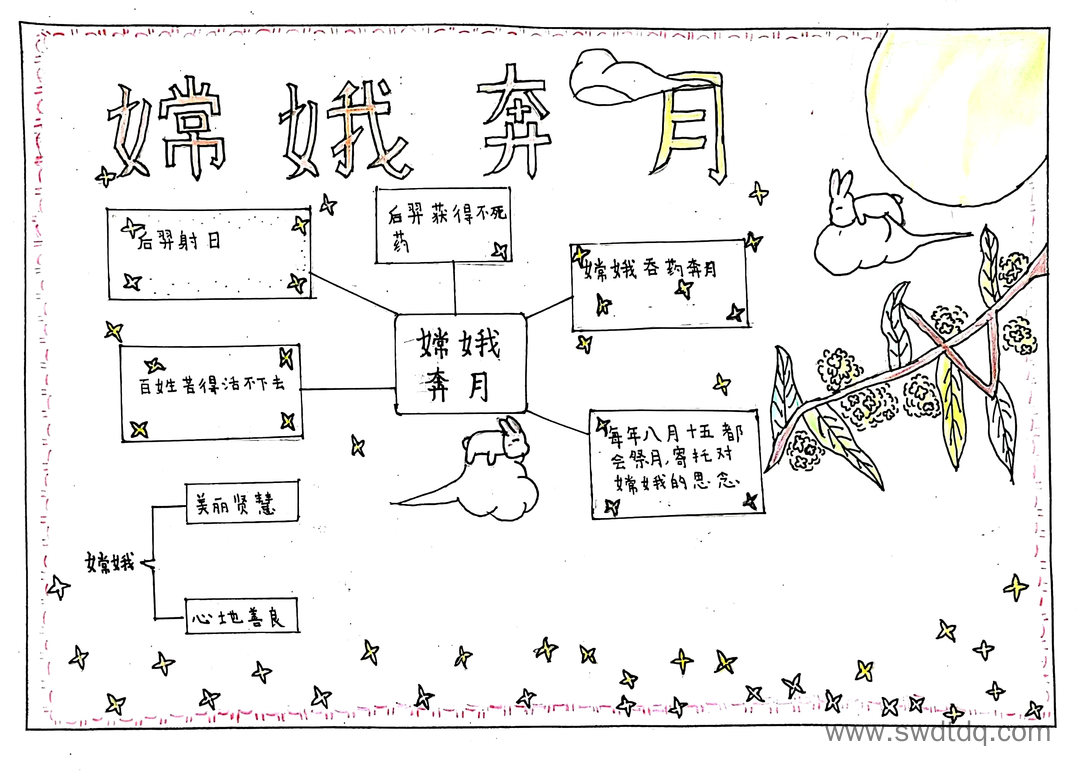 嫦娥奔月
后羿射日
后羿获得不死
药
嫦娥吞药奔月
百姓苦得活不下去
嫦娥
奔月
每年八月十五都
会祭月,寄托对
嫦娥的思念
嫦娥
美丽贤慧
心地善良
www.swdtdq.com